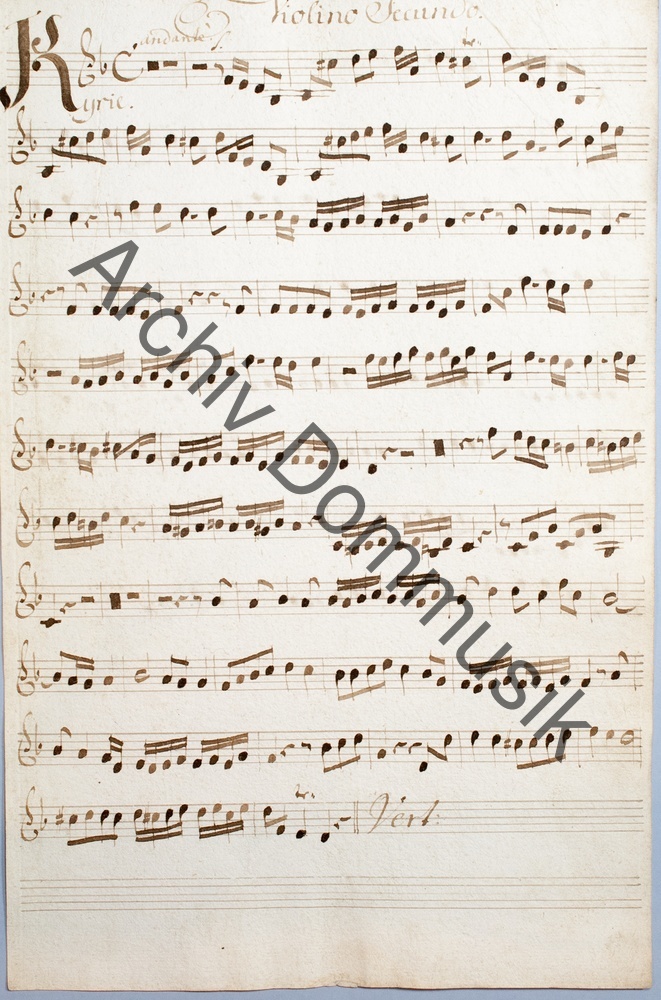 Violino Secundo.
andante.
Kyrie.
Vert:
Archiv Dommusik